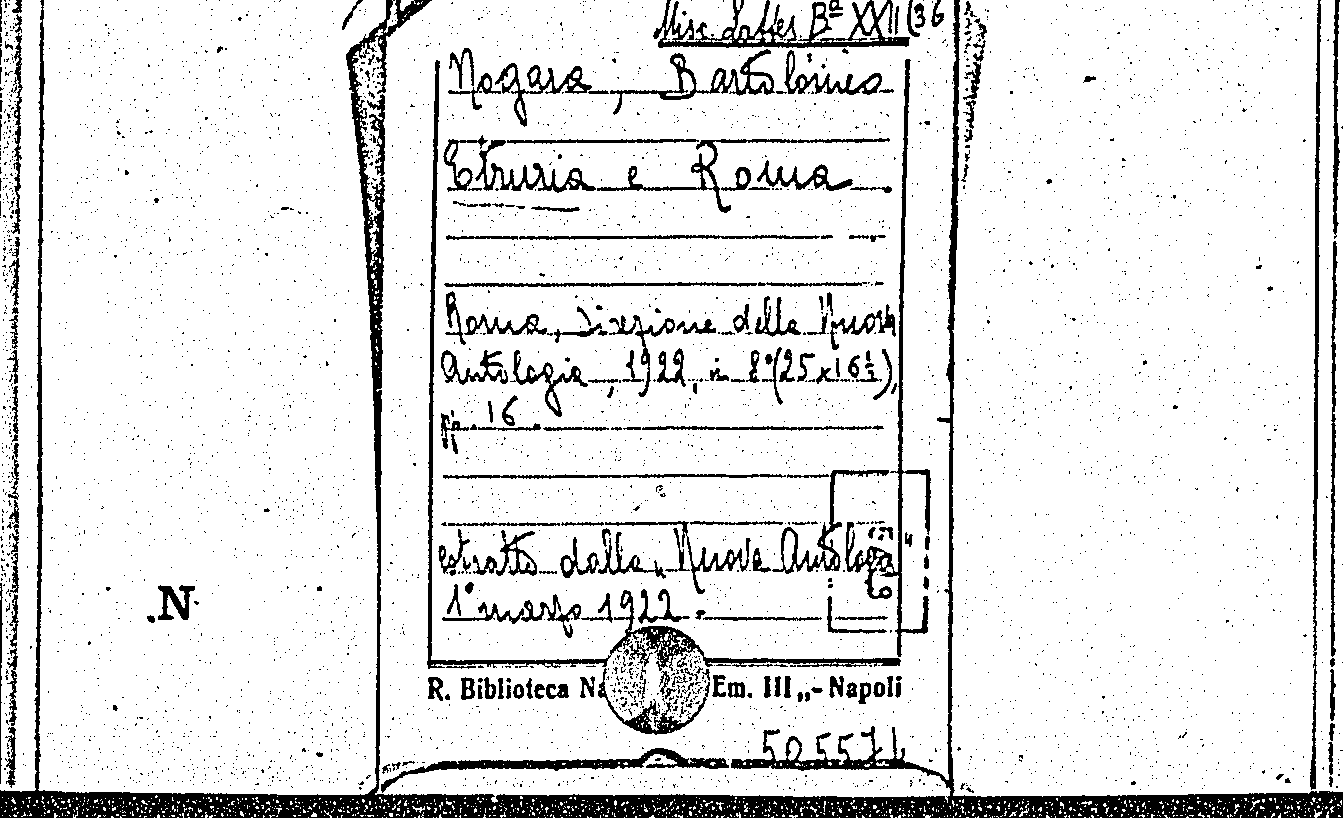 Misc. Laffes Bª XXII (36
Nogara, Bartolomeo
Etruria e Roma
Roma, Direzione della Nuova
Antologia, 1922, in 8º (25x16½),
pp. 16.
estratto dalla „Nuova Antologia"
1º marzo 1922.-
.N
R. Biblioteca Na Em. III„- Napoli
505571